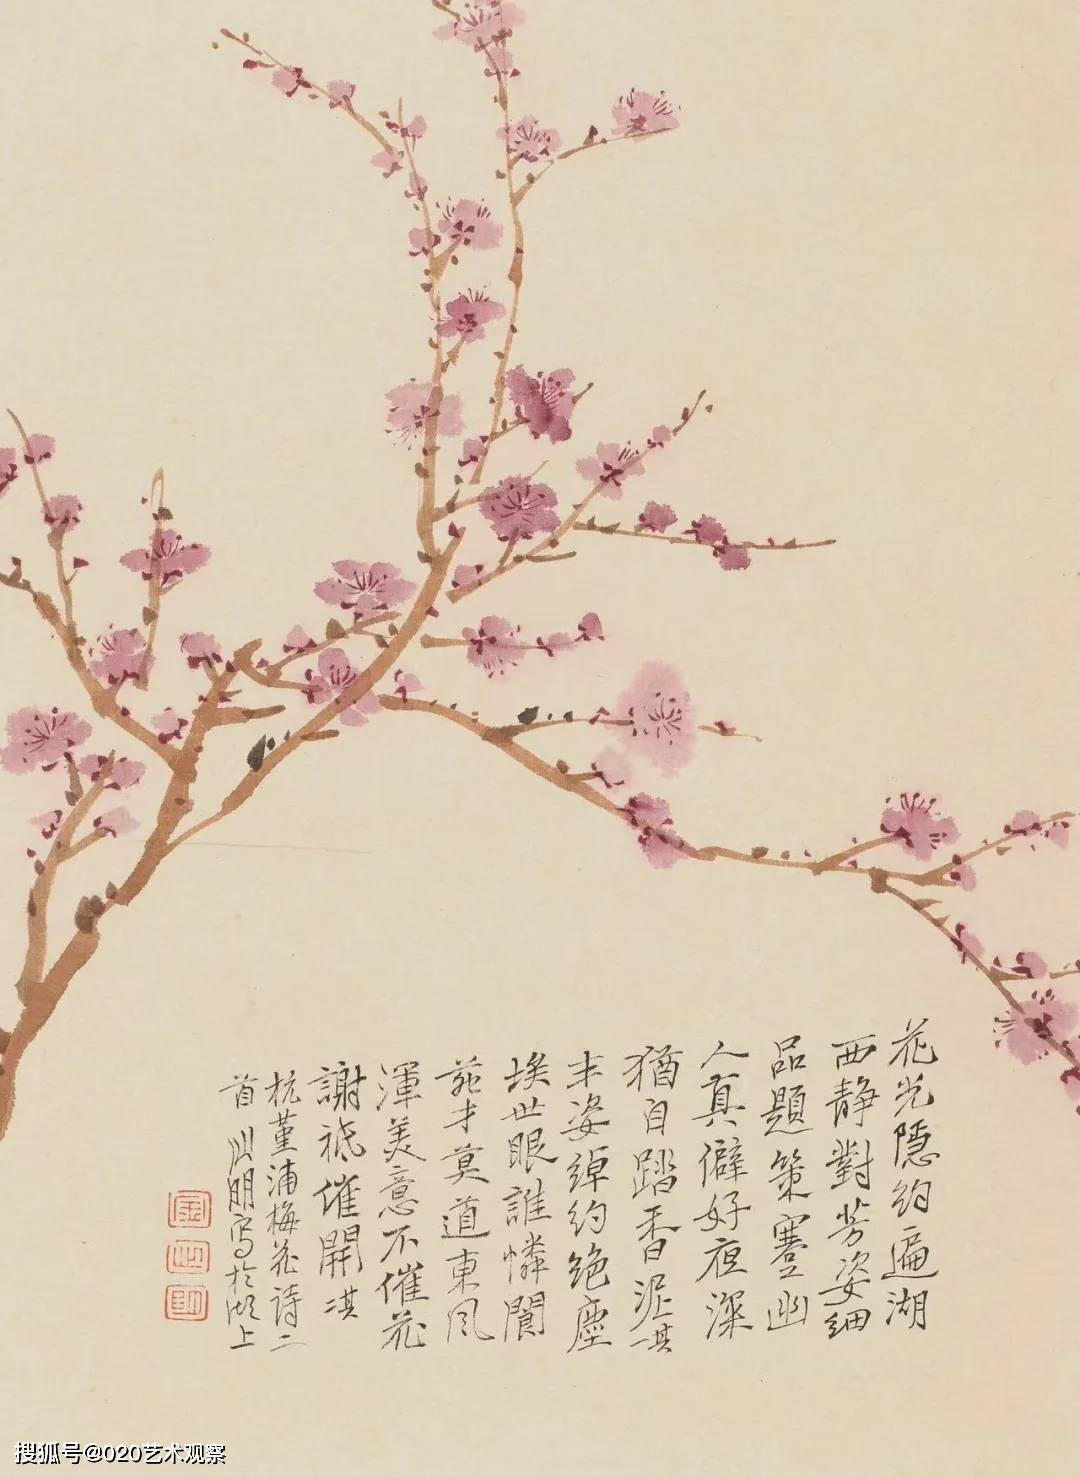 花光隱約遍湖
西靜對芳姿細
品題策蹇幽
人真僻好夜深
猶自踏香泥其一
丰姿綽約絕塵
埃世眼誰憐閬
苑才莫道東風
渾美意不催花
謝祗催開其二
杭堇浦梅花詩二
首山明写於湖上
搜狐号@020艺术观察